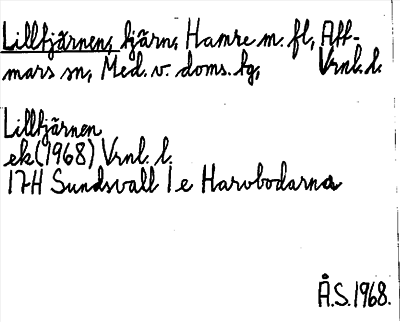 Lilltjärnen, tjärn, Hamre m. fl, Att-
mars sn, Med. v. doms. tg, Vrnl. l.
Lilltjärnen
ek (1968) Vrnl. l.
17H Sundsvall 1 e Harvbodarna
Å.S. 1968.